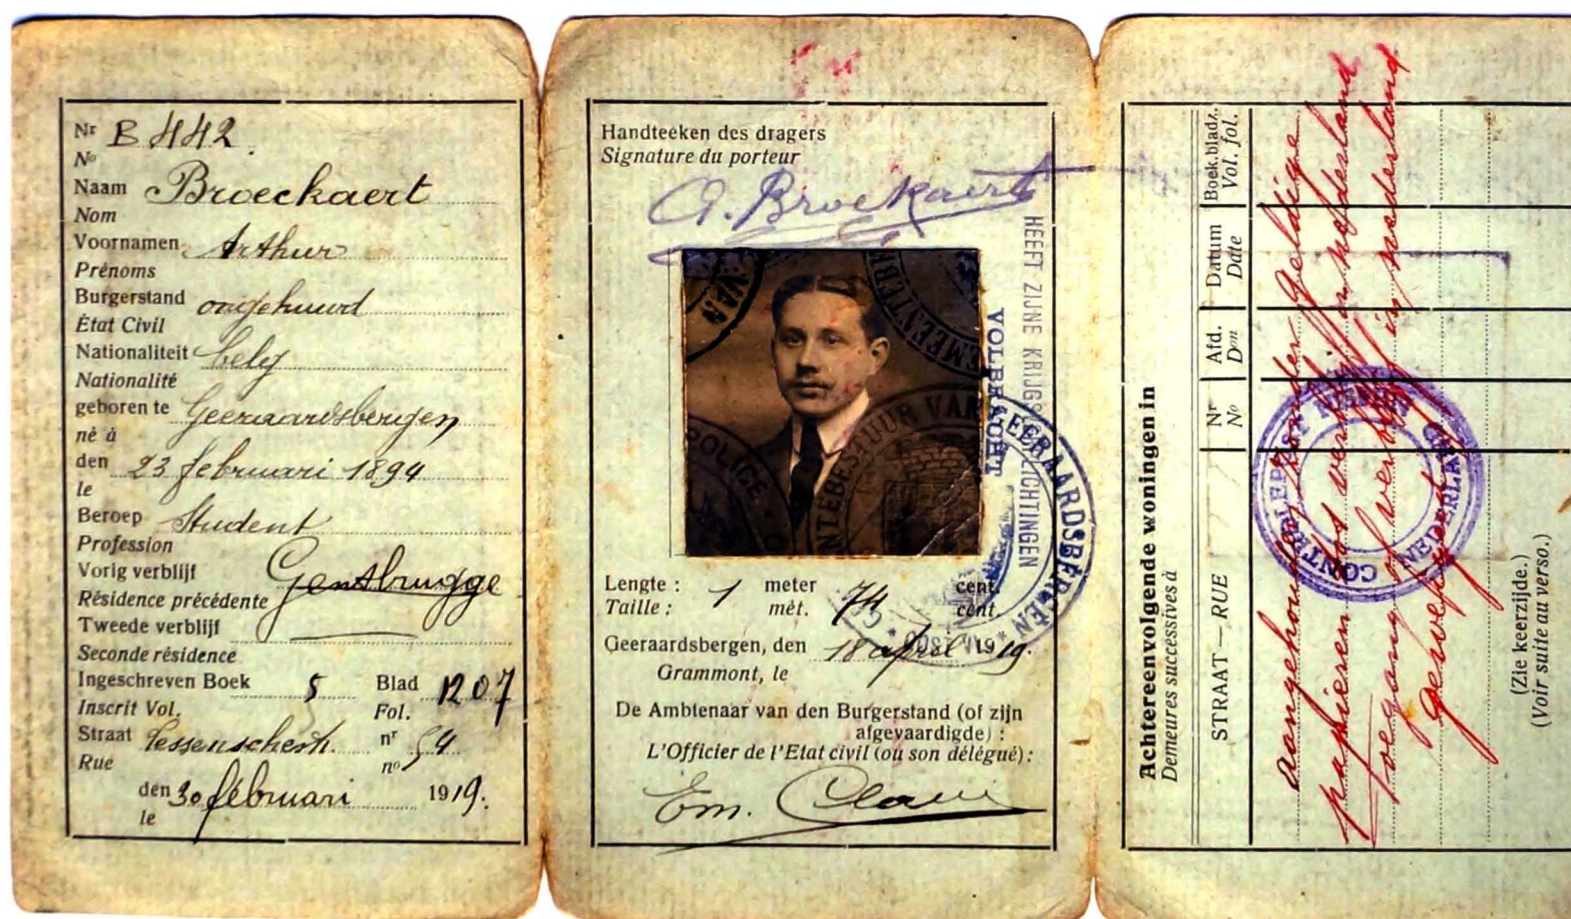 Nr B 442.
No
Naam Broeckaert
Nom
Voornamen Arthur
Prénoms
Burgerstand ongehuwd
État Civil
Nationaliteit belg
Nationalité
geboren te Geeraardsbergen
né à
den 23 februari 1894
le
Beroep Student
Profession
Vorig verblijf Gentbrugge
Résidence précédente
Tweede verblijf
Seconde résidence
Ingeschreven Boek 5 Blad 1207
Inscrit Vol. Fol.
Straat nr 54
Rue no
den 30 februari 1919.
le
Handteeken des dragers
Signature du porteur
A. Broekaert
HEEFT ZIJNE KRIJGSVERPLICHTINGEN
VOLBRACHT
GEMEENTEBESTUUR VAN GEERAARDSBERGEN
POLICE
Lengte : 1 meter 74 cent.
Taille : mèt. cent.
Geeraardsbergen, den 18 april 1919.
Grammont, le
De Ambtenaar van den Burgerstand (of zijn
afgevaardigde) :
L'Officier de l'Etat civil (ou son délégué) :
Em.
Achtereenvolgende woningen in
Demeures successives à
STRAAT — RUE
Nr
No
Afd.
Don
Datum
Date
Boek.bladz.
Vol. fol.
aangehouden zonder geldige
papieren tot verblijf in nederland
toegang of verblijf is nederland
geweigerd
NEDERLAND
(Zie keerzijde.)
(Voir suite au verso.)